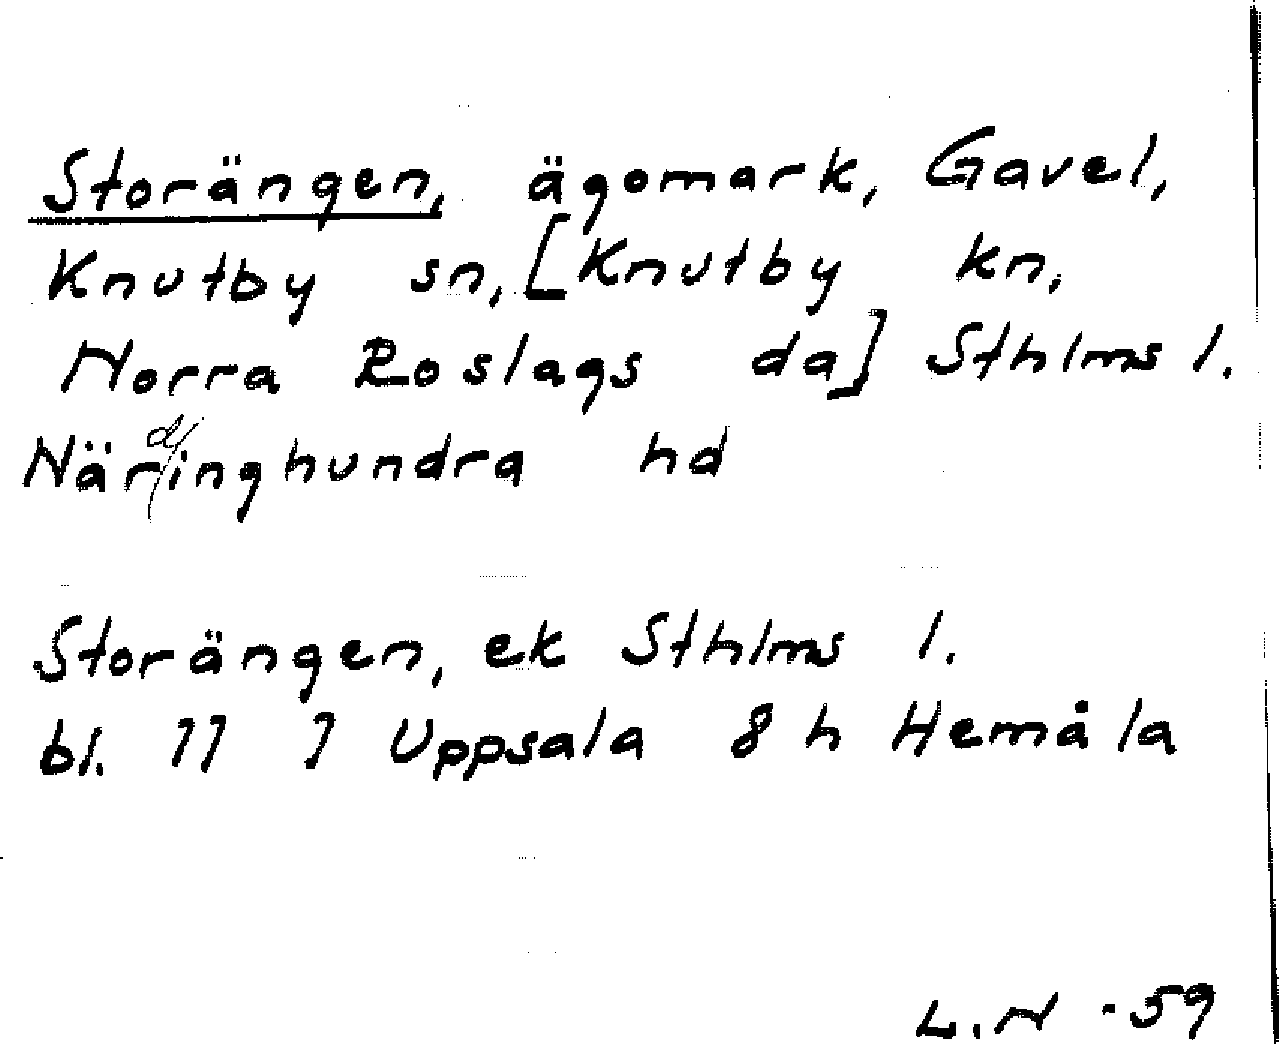 Storängen, ägomark, Gavel,
Knutby sn, [Knutby kn,
Norra Roslags da] Sthlms l.
Närdinghundra hd
Storängen, ek Sthlms l.
bl. 11 7 Uppsala 8 h Hemåla
L.N -59